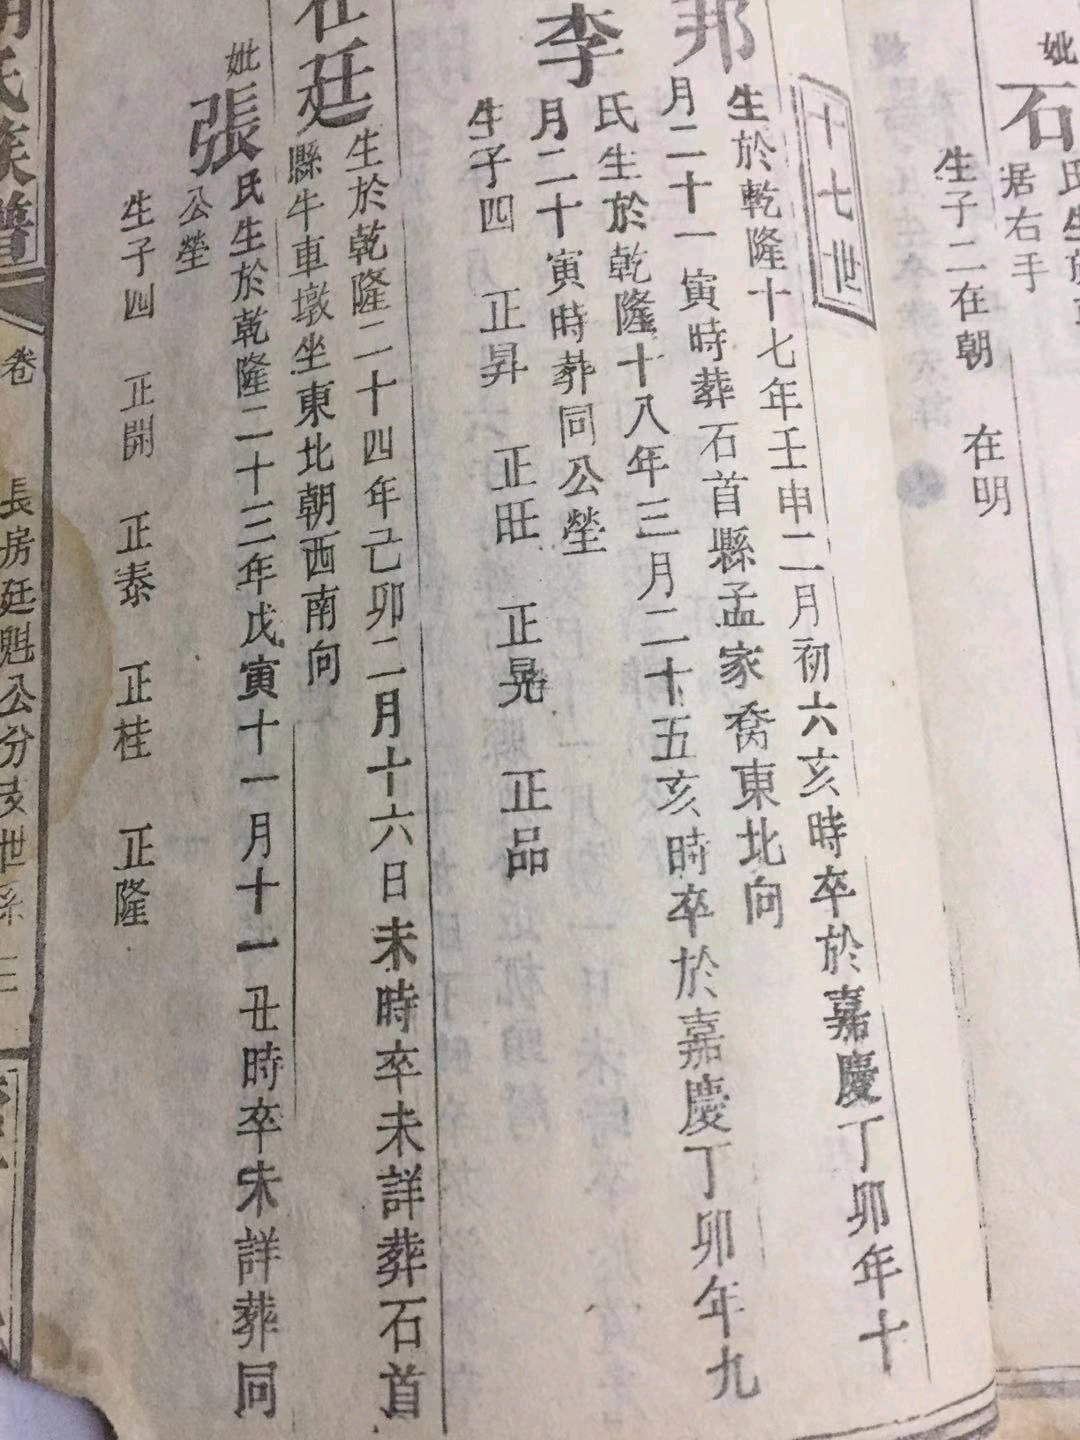 妣
石
氏生於
居右手
生子二在朝 在明
十七世
邦
生於乾隆十七年壬申二月初六亥時卒於嘉慶丁卯年十
月二十一寅時葬石首縣孟家喬東北向
李
氏生於乾隆十八年三月二十五亥時卒於嘉慶丁卯年九
月二十寅時葬同公塋
生子四 正昇 正旺 正晃 正品
在廷
生於乾隆二十四年己卯二月十六日未時卒未詳葬石首
縣牛車墩坐東北朝西南向
妣
張
氏生於乾隆二十三年戊寅十一月十一丑時卒未詳葬同
公塋
生子四 正開 正泰 正桂 正隆
氏族譜
卷
長房廷魁公分支世系